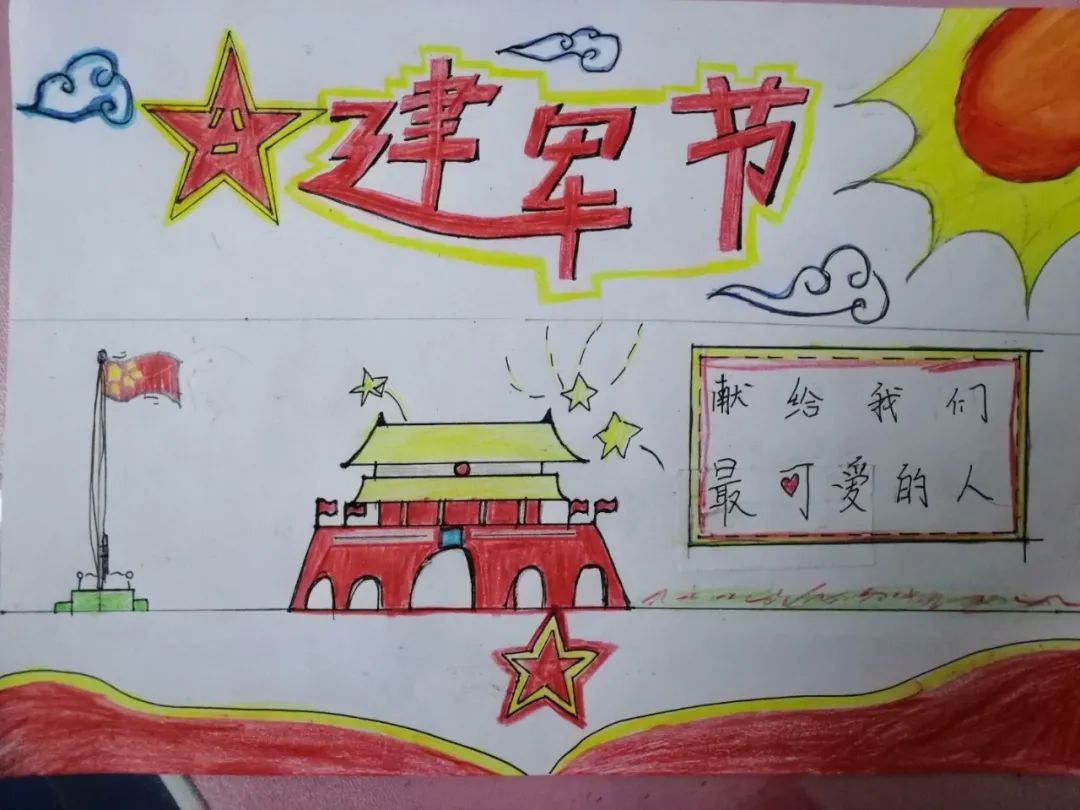 八一建军节
献给我们
最可爱的人